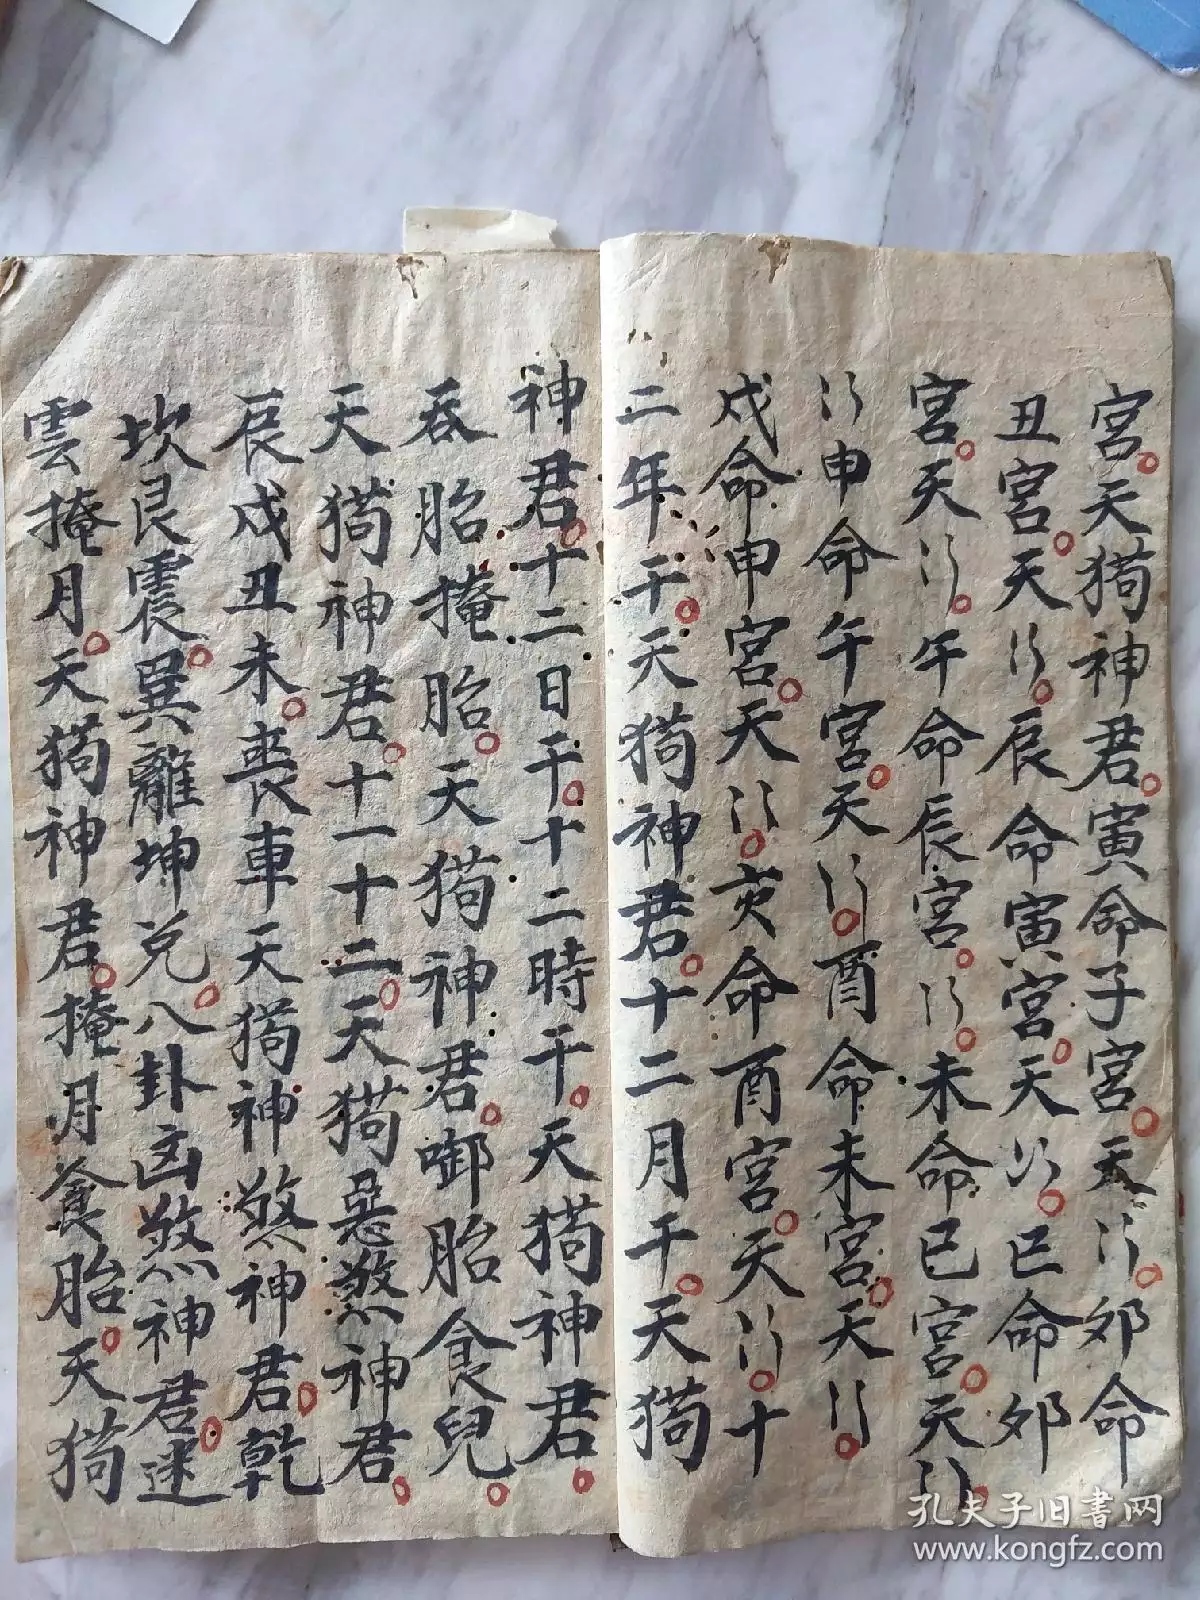 宮天狗神君寅命子宮天〻卯命
丑宮天〻辰命寅宮天〻巳命卯
宮天〻午命辰宮〻未命巳宮天〻
〻申命午宮天〻酉命未宮天〻
戌命申宮天〻亥命酉宮天〻十
二年干天狗神君十二月干天狗
神君十二日干十二時干天狗神君
吞胎掩胎天狗神君啣胎食兒
天狗神君十一十二天狗惡煞神君
辰戌丑未喪車天狗神煞神君乾
坎艮震巽離坤兌八卦凶煞神君迷
雲掩月天狗神君掩月食胎天狗
孔夫子旧書网
www.kongfz.com